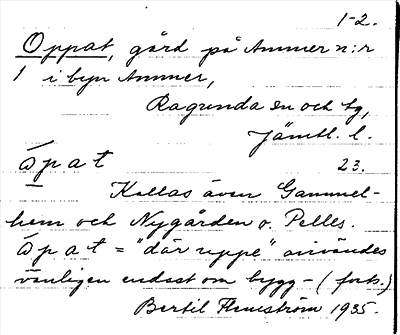 1-2.
Oppat, gård på Ammer n:r
1 i byn Ammer,
Ragunda sn och tg,
Jämtl. l.
åpat 23.
Kallas även Gammel-
hem och Nygården o. Pelles.
åpat = "där uppe" användes
vanligen endast om bygg- (forts.)
Bertil Flemström 1935.